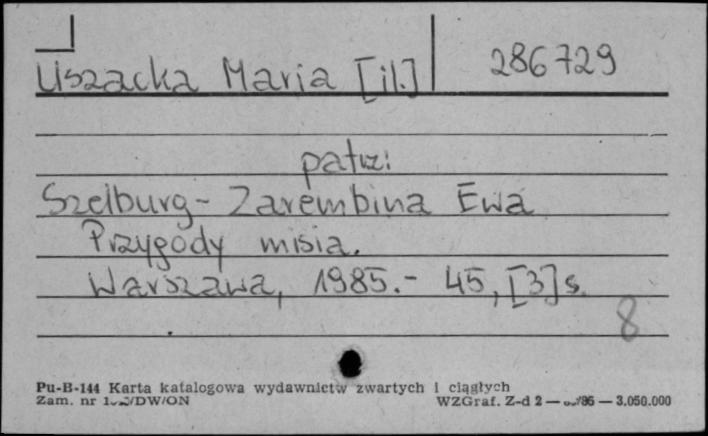 Uszacka Maria [il.] 286729
patrz:
Szelburg-Zarembina Ewa
Przygody misia.
Warszawa, 1985.- 45, [3] s.
8
Pu-B-144 Karta katalogowa wydawnictw zwartych i ciągłych
Zam. nr /DW/ON WZGraf. Z-d 2 — /86 — 3.050.000